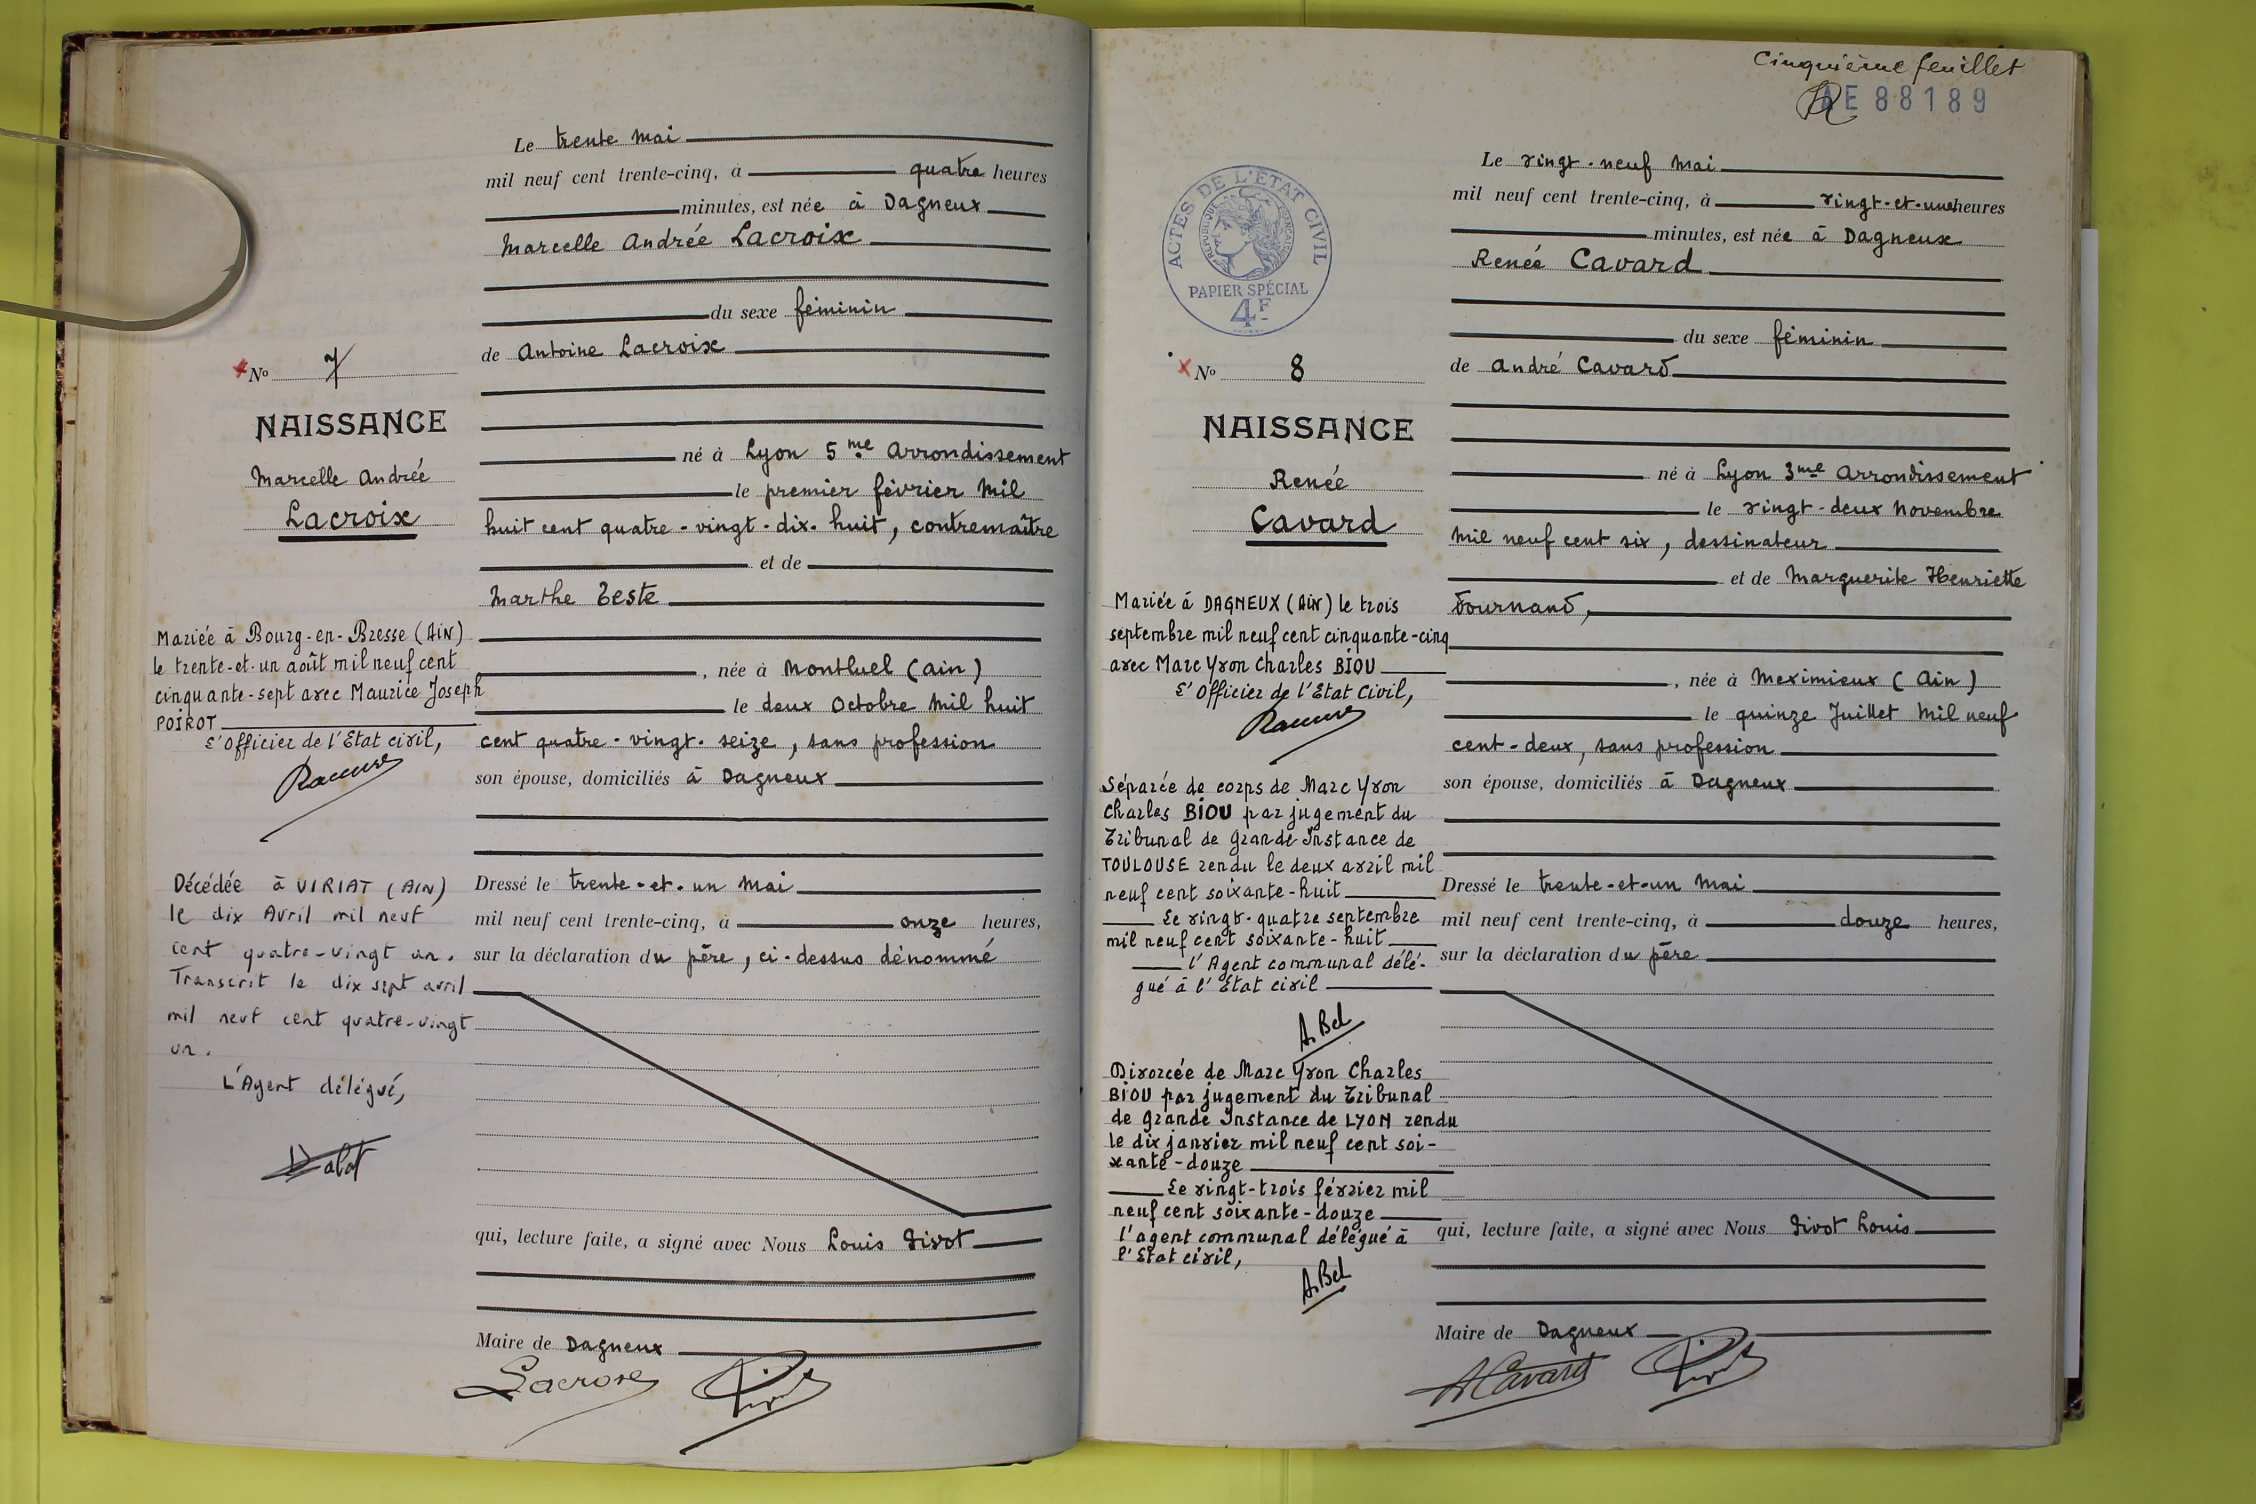 Le trente Mai
mil neuf cent trente-cinq, à quatre heures
minutes, est née à Dagneux
Marcelle Andrée Lacroix
du sexe féminin
de Antoine Lacroix
né à Lyon 5me Arrondissement
le premier février Mil
huit cent quatre-vingt-dix-huit, contremaître
et de
Marthe Teste
, née à Montluel (Ain)
le deux Octobre Mil huit
cent quatre-vingt-seize, sans profession
son épouse, domiciliés à Dagneux
Dressé le trente-et-un Mai
mil neuf cent trente-cinq, à onze heures,
sur la déclaration du père, ci-dessus dénommé
qui, lecture faite, a signé avec Nous Louis
Maire de Dagneux
No 7
NAISSANCE
Marcelle Andrée
Lacroix
Mariée à Bourg-en-Bresse (AIN)
le trente-et-un août mil neuf cent
cinquante-sept avec Maurice Joseph
POIROT
L'Officier de l'Etat civil,
Décédée à VIRIAT (AIN)
le dix Avril mil neuf
cent quatre-vingt un.
Transcrit le dix sept avril
mil neuf cent quatre-vingt
un.
L'Agent délégué,
Lacroix
Cinquième feuillet
AE 88189
ACTES DE L'ETAT CIVIL
REPUBLIQUE FRANÇAISE
PAPIER SPÉCIAL
4F
Le vingt-neuf Mai
mil neuf cent trente-cinq, à vingt-et-une heures
minutes, est née à Dagneux
Renée Cavard
du sexe féminin
de André Cavard
né à Lyon 3me Arrondissement
le vingt-deux Novembre
Mil neuf cent six, dessinateur
et de Marguerite Henriette
née à Meximieux (Ain)
le quinze Juillet Mil neuf
cent-deux, sans profession
son épouse, domiciliés à Dagneux
Dressé le trente-et-un Mai
mil neuf cent trente-cinq, à douze heures,
sur la déclaration du père
qui, lecture faite, a signé avec Nous Louis
Maire de Dagneux
No 8
NAISSANCE
Renée
Cavard
Mariée à DAGNEUX (AIN) le trois
septembre mil neuf cent cinquante-cinq
avec Marc Yvon Charles BIOU
L'Officier de l'Etat Civil,
Séparée de corps de Marc Yvon
Charles BIOU par jugement du
Tribunal de Grande Instance de
TOULOUSE rendu le deux avril mil
neuf cent soixante-huit
Le vingt-quatre septembre
mil neuf cent soixante-huit
l'Agent communal délé-
gué à l'Etat civil
A. Bel
Divorcée de Marc Yvon Charles
BIOU par jugement du Tribunal
de Grande Instance de LYON rendu
le dix janvier mil neuf cent soi-
xante-douze
Le vingt-trois février mil
neuf cent soixante-douze
l'agent communal délégué à
l'Etat civil,
A. Bel
A Cavard